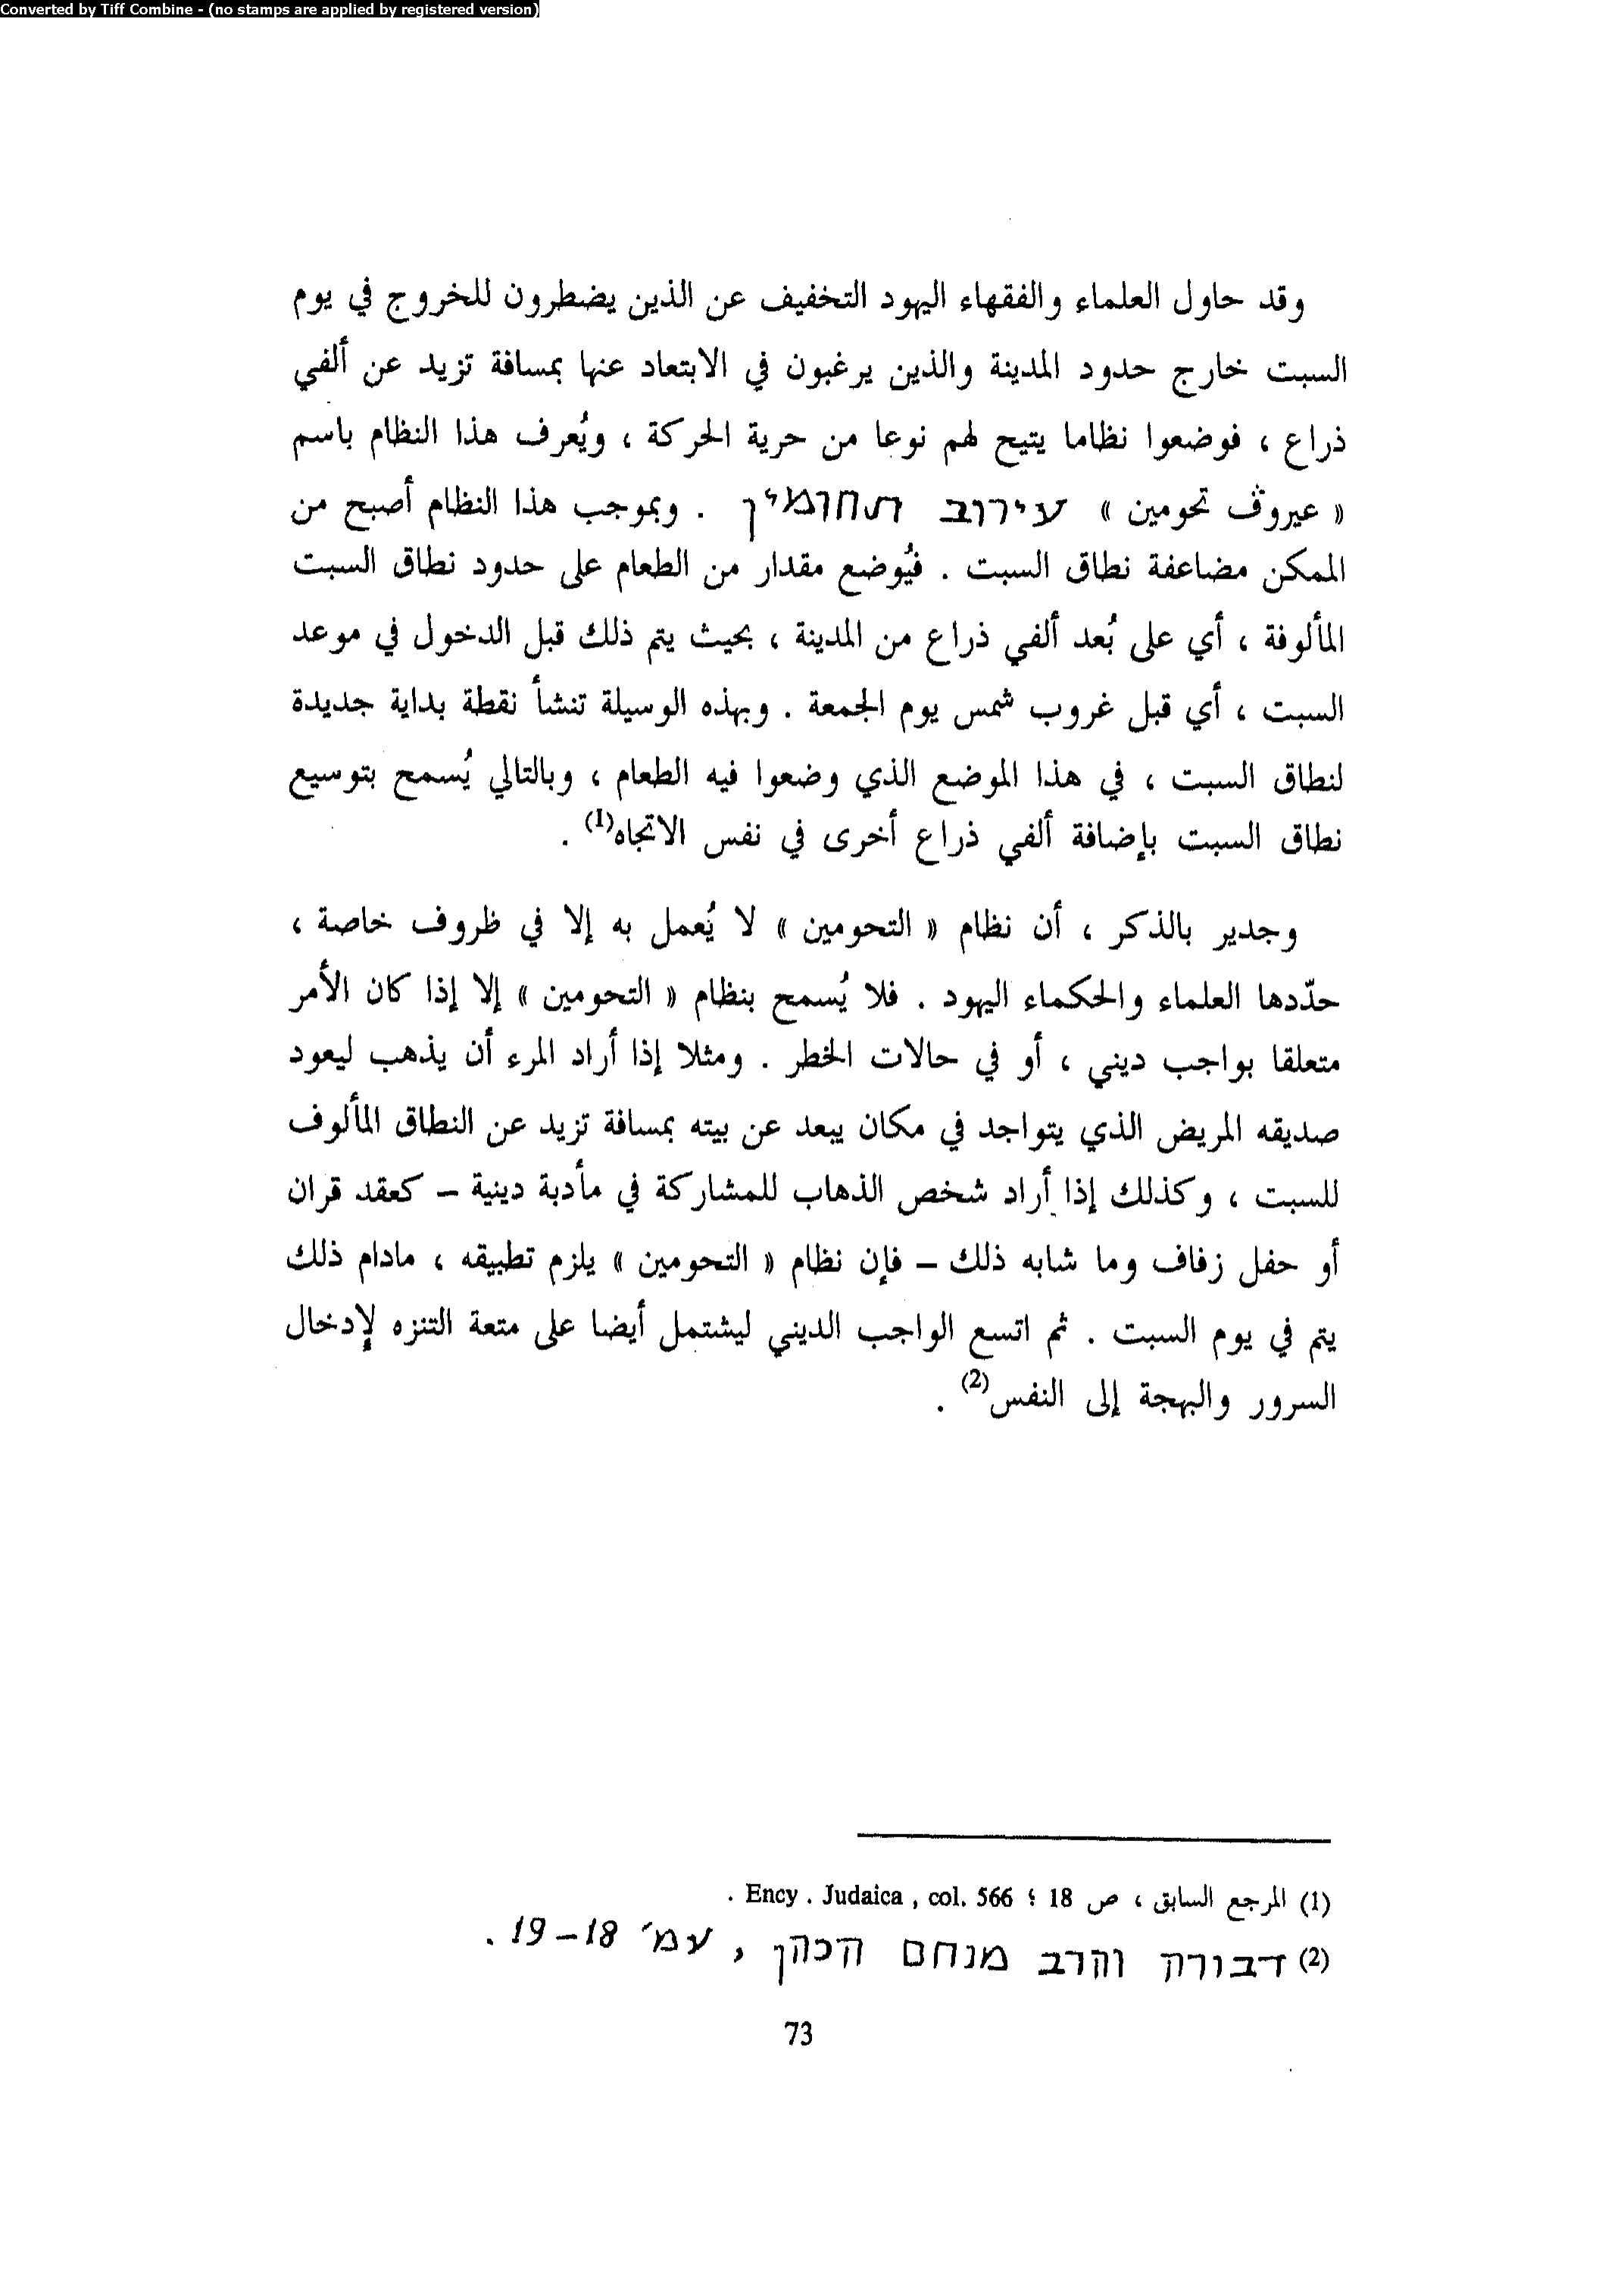 Converted by Tiff Combine - (no stamps are applied by registered version)
وقد حاول العلماء والفقهاء اليهود التخفيف عن الذين يضطرون للخروج في يوم
السبت خارج حدود المدينة والذين يرغبون في الابتعاد عنها بمسافة تزيد عن ألفي
ذراع ، فوضعوا نظاما يتيح لهم نوعا من حرية الحركة ، ويُعرف هذا النظام باسم
« عيروڤ تحومين » עירוב תחומין . وبموجب هذا النظام أصبح من
الممكن مضاعفة نطاق السبت . فيُوضع مقدار من الطعام على حدود نطاق السبت
المألوفة ، أي على بُعد ألفي ذراع من المدينة ، بحيث يتم ذلك قبل الدخول في موعد
السبت ، أي قبل غروب شمس يوم الجمعة . وبهذه الوسيلة تنشأ نقطة بداية جديدة
لنطاق السبت ، في هذا الموضع الذي وضعوا فيه الطعام ، وبالتالي يُسمح بتوسيع
نطاق السبت بإضافة ألفي ذراع أخرى في نفس الاتجاه(1) .
وجدير بالذكر ، أن نظام « التحومين » لا يُعمل به إلا في ظروف خاصة ،
حدّدها العلماء والحكماء اليهود . فلا يُسمح بنظام « التحومين » إلا إذا كان الأمر
متعلقا بواجب ديني ، أو في حالات الخطر . ومثلا إذا أراد المرء أن يذهب ليعود
صديقه المريض الذي يتواجد في مكان يبعد عن بيته بمسافة تزيد عن النطاق المألوف
للسبت ، وكذلك إذا أراد شخص الذهاب للمشاركة في مأدبة دينية – كعقد قران
أو حفل زفاف وما شابه ذلك – فإن نظام « التحومين » يلزم تطبيقه ، مادام ذلك
يتم في يوم السبت . ثم اتسع الواجب الديني ليشتمل أيضا على متعة التنزه لإدخال
السرور والبهجة إلى النفس(2) .
(1) المرجع السابق ، ص 18 ؛ Ency . Judaica , col. 566 .
(2) דבורה והרב מנחם הכהן , עמ׳ 18–19 .
73